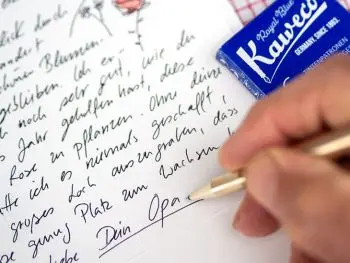 lick durch
andert
Blumen
geblieben. Ich er
noch sehr gut, wie du
Jahr geholfen hast, diese
Rose zu pflanzen. Ohne deine
tte ich es niemals geschafft,
großes Loch auszugraben, dass
genug Platz zum Wachsen
Dein Opa
Royal Blue
Kaweco
GERMANY, SINCE 1883.
TINTENPATRONEN